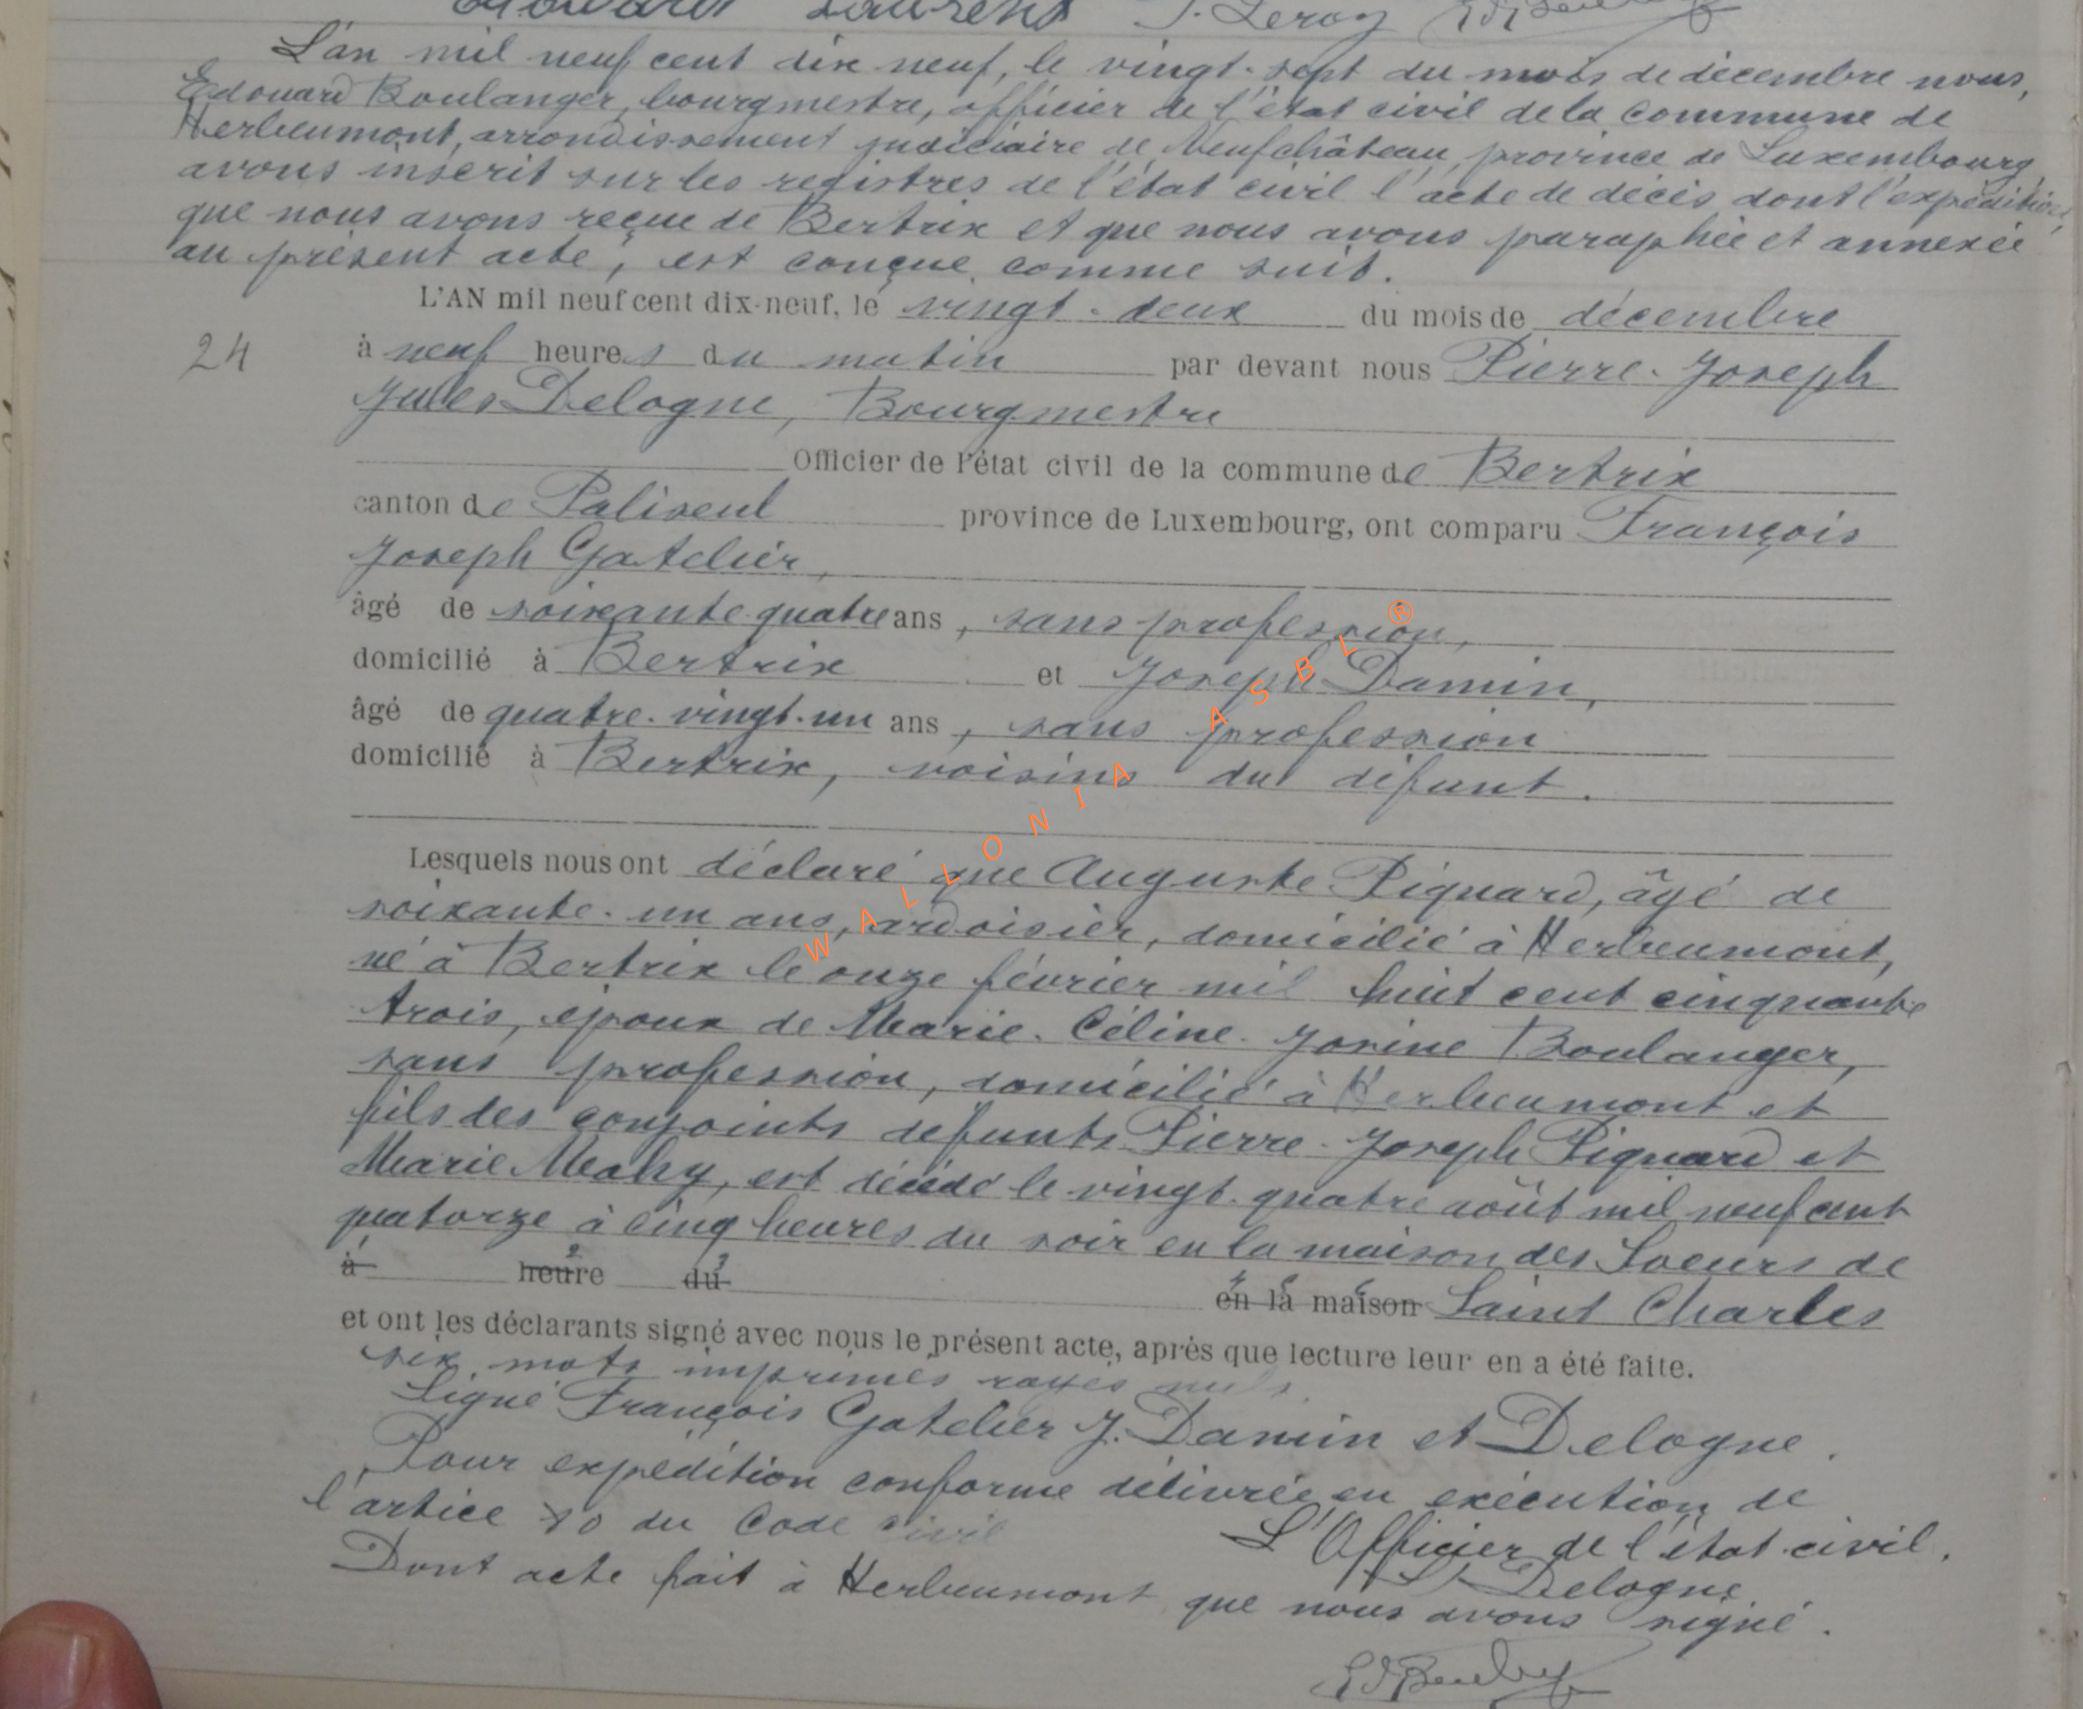 Edouard Laurent J. Leroy
L'an mil neuf cent dix neuf, le vingt-sept du mois de décembre nous,
Edouard Boulanger, bourgmestre, officier de l'état civil de la commune de
Herbeumont, arrondissement judiciaire de Neufchâteau, province de Luxembourg,
avons inscrit sur les registres de l'état civil l'acte de décès dont l'expédition,
que nous avons reçue de Bertrix et que nous avons paraphée et annexée
au présent acte, est conçue comme suit.
L'AN mil neuf cent dix-neuf, le vingt-deux du mois de décembre
24
à neuf heures du matin par devant nous Pierre-Joseph
Jules Delogne, Bourgmestre
Officier de l'état civil de la commune de Bertrix
canton de Paliseul province de Luxembourg, ont comparu François
Joseph Gatelier,
âgé de soixante-quatre ans, sans profession,
domicilié à Bertrix et Joseph Damin,
âgé de quatre-vingt-un ans, sans profession
domicilié à Bertrix, voisins du défunt.
Lesquels nous ont déclaré que Auguste Piquard, âgé de
soixante-un ans, ardoisier, domicilié à Herbeumont,
né à Bertrix le onze février mil huit cent cinquante
trois, époux de Marie-Céline-Josine Boulanger,
sans profession, domicilié à Herbeumont et
fils des conjoints défunts Pierre-Joseph Piquard et
Marie Mahy, est décédé le vingt-quatre août mil neuf cent
quatorze à cinq heures du soir en la maison des Soeurs de
à heure du en la maison Saint Charles
et ont les déclarants signé avec nous le présent acte, après que lecture leur en a été faite.
six mots imprimés rayés nuls.
Signé François Gatelier J. Damin et Delogne.
Pour expédition conforme délivrée en exécution de
l'artice 80 du Code civil
L'Officier de l'état civil.
Delogne
Dont acte fait à Herbeumont que nous avons signé.
WALLONIA ASBL ®